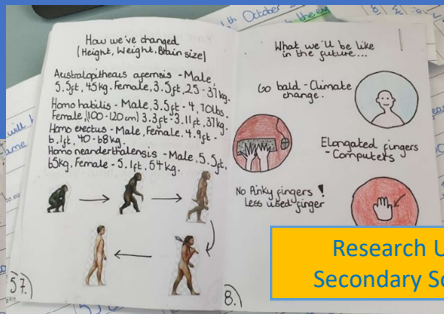 How we've changed
(Height, Weight, Brain size)
Australopitheaus aferensis - Male,
5.5ft, 45kg. Female, 3.5ft, 25-37kg.
Homo habilis - Male, 3.5ft - 4, 70lbs.
Female (100-120cm) 3.3ft - 3.11ft, 37kg.
Homo erectus - Male, Female, 4.9ft -
6.1ft, 40-68kg.
Homo neanderthalensis - Male, 5.5ft,
65kg, Female - 5.1ft, 54kg.
57.)
What we'll be like
in the future...
Go bald - Climate
change.
Elongated fingers
- Computers
No Pinky fingers!
Less used finger
8.)
October
Research
Secondary